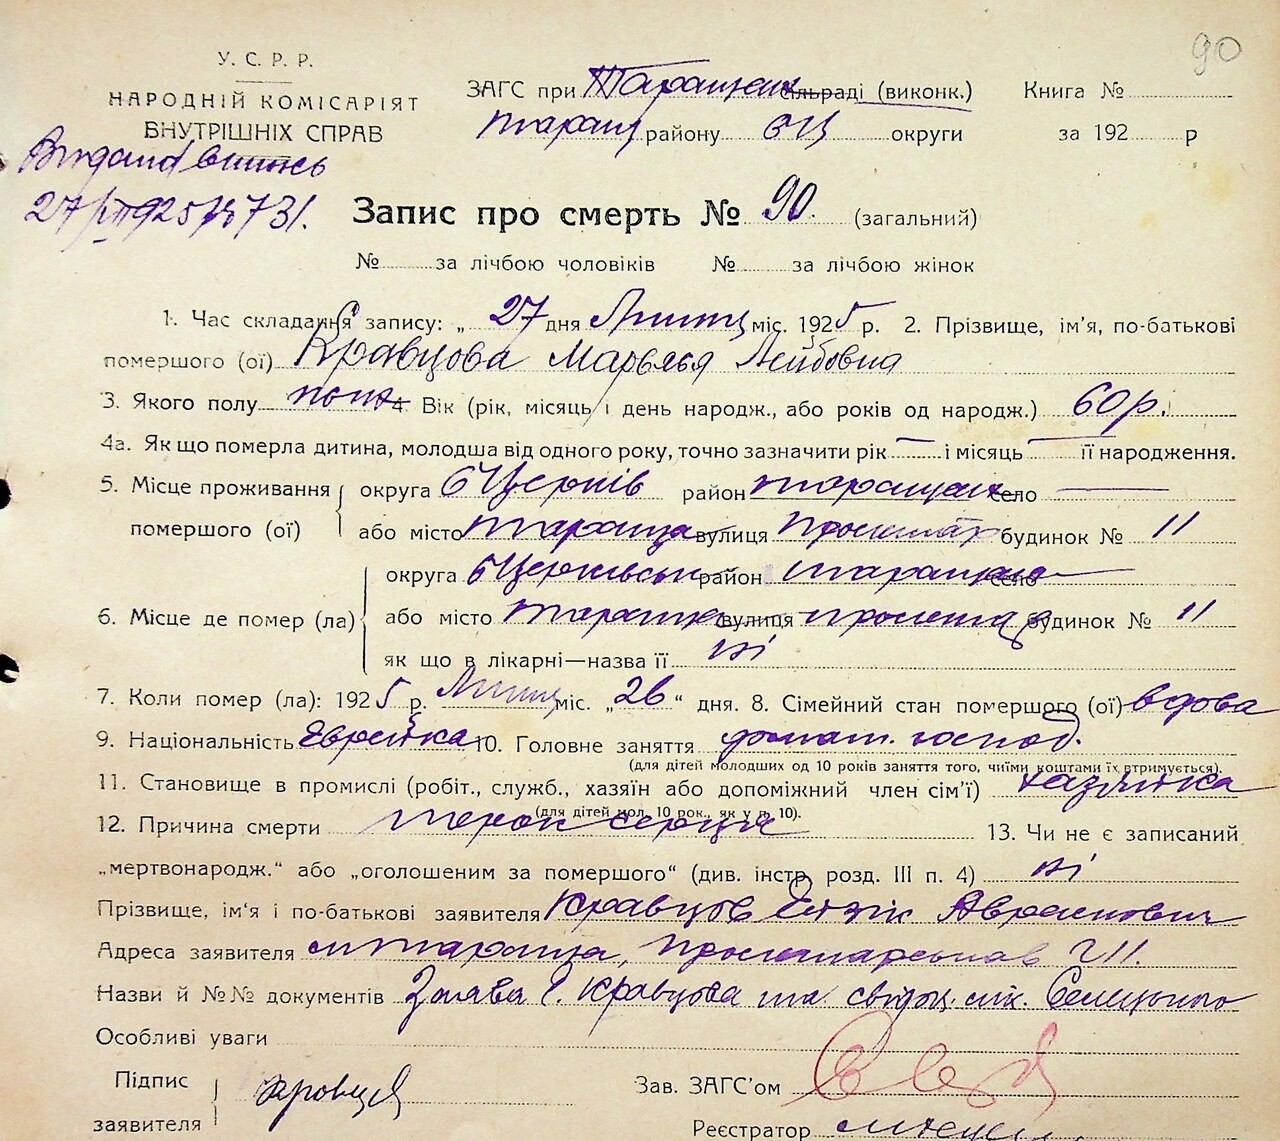 90
У. С. Р. Р.
НАРОДНІЙ КОМІСАРІЯТ
ВНУТРІШНІХ СПРАВ
ЗАГС при Таращан сільраді (виконк.) Книга №
Таращ району БЦ округи за 192 р
Запис про смерть № 90. (загальний)
№ за лічбою чоловіків № за лічбою жінок
1. Час складання запису: „ 27 дня Липця міс. 1925 р. 2. Прізвище, ім'я, по-батькові
помершого (ої) Кравцова Марьяся Лейбовна
3. Якого полу жіно 4. Вік (рік, місяць і день народж., або років од народж.) 60 р.
4а. Як що померла дитина, молодша від одного року, точно зазначити рік — і місяць — її народження.
5. Місце проживання помершого (ої) округа БЦерків район Таращан село —
або місто Тараща вулиця Пролетар будинок № 11
6. Місце де помер (ла) округа БЦерківськ район Таращан село —
або місто Тараща вулиця Пролетар будинок № 11
як що в лікарні—назва її ні
7. Коли помер (ла): 1925 р. Липця міс. „26“ дня. 8. Сімейний стан помершого (ої) вдова
9. Національність Еврейка 10. Головне заняття домаш. господ.
(для дітей молодших од 10 років заняття того, чиїми коштами їх втримується).
11. Становище в промислі (робіт., служб., хазяїн або допоміжний член сім'ї) хазяйка
(для дітей мол. 10 рок., як у п. 10).
12. Причина смерти порок серця 13. Чи не є записаний
„мертвонародж.“ або „оголошеним за помершого“ (див. інстр. розд. III п. 4) ні
Прізвище, ім'я і по-батькові заявителя Кравцов Абрамович
Адреса заявителя м Тараща, Пролетарська 11.
Назви й №№ документів Заява Кравцова та свідоц. лік. Селецького
Особливі уваги
Підпис заявителя Кравцов
Зав. ЗАГС'ом
Реєстратор